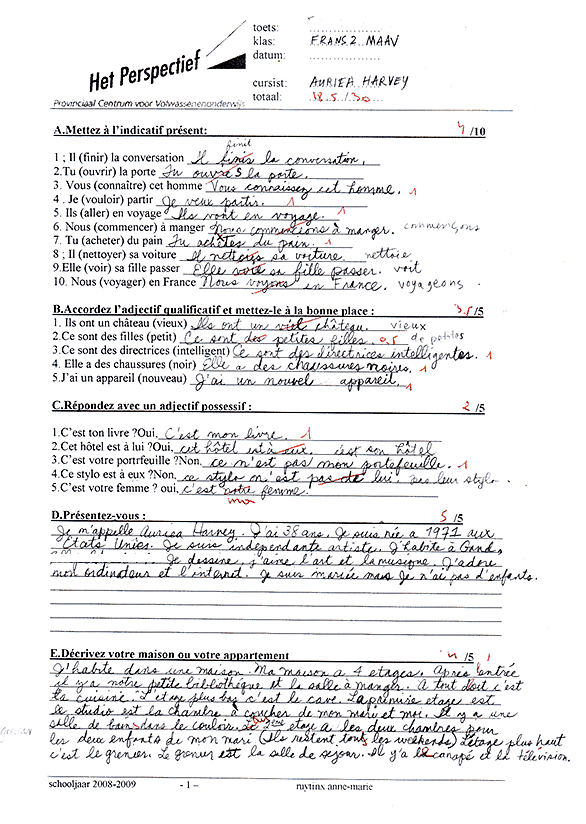 Het Perspectief
Provinciaal Centrum voor Volwassenenonderwijs
toets:
klas: FRANS 2 MAAV
datum:
cursist: AURIEA HARVEY
totaal: 18.5/30
A.Mettez à l'indicatif présent: 4/10
finit
1 ; Il (finir) la conversation Il finis la conversation.
2.Tu (ouvrir) la porte Tu ouvres la porte.
3. Vous (connaître) cet homme Vous connaissez cet homme. 1
4 . Je (vouloir) partir Je veux partir. 1
5. Ils (aller) en voyage Ils vont en voyage. 1
6. Nous (commencer) à manger Nous commencions à manger. commençons
7. Tu (acheter) du pain Tu achètes du pain. 1
8 ; Il (nettoyer) sa voiture Il nettois sa voiture. nettoie
9.Elle (voir) sa fille passer Elle voie sa fille passer. voit
10. Nous (voyager) en France Nous voyons en France. voyageons
B.Accordez l'adjectif qualificatif et mettez-le à la bonne place : 3.5/5
1. Ils ont un château (vieux) Ils ont un château. vieux
2.Ce sont des filles (petit) Ce sont des petites filles. 0,5 de petites
3.Ce sont des directrices (intelligent) Ce sont des directrices intelligentes. 1
4. Elle a des chaussures (noir) Elle a des chaussures noires. 1
5.J'ai un appareil (nouveau) J'ai un nouvel appareil. 1
C.Répondez avec un adjectif possessif : 2/5
1.C'est ton livre ?Oui, C'est mon livre. 1
2.Cet hôtel est à lui ?Oui, cet hôtel est à eux. c'est son hôtel
3.C'est votre portrfeuille ?Non, ce n'est pas mon portefeuille. 1
4.Ce stylo est à eux ?Non, ce stylo n'est pas de lui. pas leur stylo
5.C'est votre femme ? oui, c'est notre femme.
ma
D.Présentez-vous : 5/5
Je m'appelle Auriea Harvey. J'ai 38 ans. Je suis née a 1971 aux
États Unies. Je suis independante artiste. J'habite à Gand,
Je dessine, j'aime l'art et la musique. J'adore
mon ordinateur et l'internet. Je suis mariée mais je n'ai pas d'enfants.
E.Décrivez votre maison ou votre appartement 4/5
J'habite dans une maison. Ma maison a 4 etages. Après entrée
il y a notre petite bibliothèque et la salle à manger. A tout droit c'est
la cuisine. L'etage plus bas c'est le cave. La première etage est
le studio est la chambre à coucher de mon mari et moi. Il y a une
salle de bain dans le couloir. etage a les deux chambres pour
les deux enfants de mon mari (Ils restent tous les weekends). L'etage plus haut
c'est le grenier. Le grenier est la salle de sejour. Il y'a le canapé et la télévision.
schooljaar 2008-2009 - 1 – ruytinx anne-marie